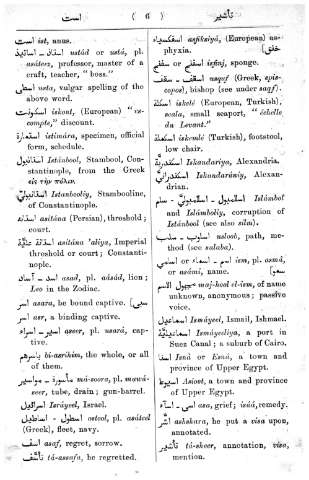 است
( 6 )
تأشير
است ist, anus.
استاد - اساتيذ ustád or ustá, pl.
asátecz, professor, master of a
craft, teacher, "boss."
اسطى usta, vulgar spelling of the
above word.
اسكونت iskont, (European) "es-
compte," discount.
استمارة istimára, specimen, official
form, schedule.
استانبول Istánbool, Stambool, Con-
stantinople, from the Greek
εἰς τὴν πόλιν.
استانبولي Istanbooliy, Stambooline,
of Constantinople.
استانه asitána (Persian), threshold;
court.
استانة عليّة asitána 'aliya, Imperial
threshold or court; Constanti-
nople.
اسد - آساد asad, pl. aásád, lion;
Leo in the Zodiac.
أسر asara, he bound captive. [سبى]
أسر asr, a binding captive.
اسير - اسراء aseer, pl. usará, cap-
tive.
باسرهم bi-asrihim, the whole, or all
of them.
ماسورة - مواسير má-soora, pl. mawá-
seer, tube, drain; gun-barrel.
اسرائيل Isráyeel, Israel.
اسطول - اساطيل ostool, pl. asáteel
(Greek), fleet, navy.
اسف asaf, regret, sorrow.
تأسّف tá-assafa, he regretted.
اسفكسياء asfiksiyá, (European) as-
phyxia. [خنق]
اسفنج or سفنج isfinj, sponge.
اسقف - سقف asqof (Greek, epis-
copos), bishop (see under saqf).
اسكلة iskelé (European, Turkish),
scala, small seaport, "échelle
du Levant."
اسكملة iskemlé (Turkish), footstool,
low chair.
اسكندرية Iskandariya, Alexandria.
اسكندراني Iskandarániy, Alexan-
drian.
اسلامبول - اسلامبولي - سلم Islámbol
and Islámboliy, corruption of
Istánbool (see also silm).
اسلوب - سلب usloob, path, me-
thod (see salaba).
اسم - اسماء or اسامي ism, pl. asmá,
or asámi, name. [سمو]
مجهول الاسم maj-hool el-ism, of name
unknown, anonymous; passive
voice.
اسماعيل Ismáyeel, Ismail, Ishmael.
اسماعيلية Ismáyeeliya, a port in
Suez Canal; a suburb of Cairo.
اسنا Isná or Esná, a town and
province of Upper Egypt.
اسيوط Asioot, a town and province
of Upper Egypt.
اسى - اساء asa, grief; isáá, remedy.
أشر ashshara, he put a visa upon,
annotated.
تأشير tá-sheer, annotation, visa,
mention.